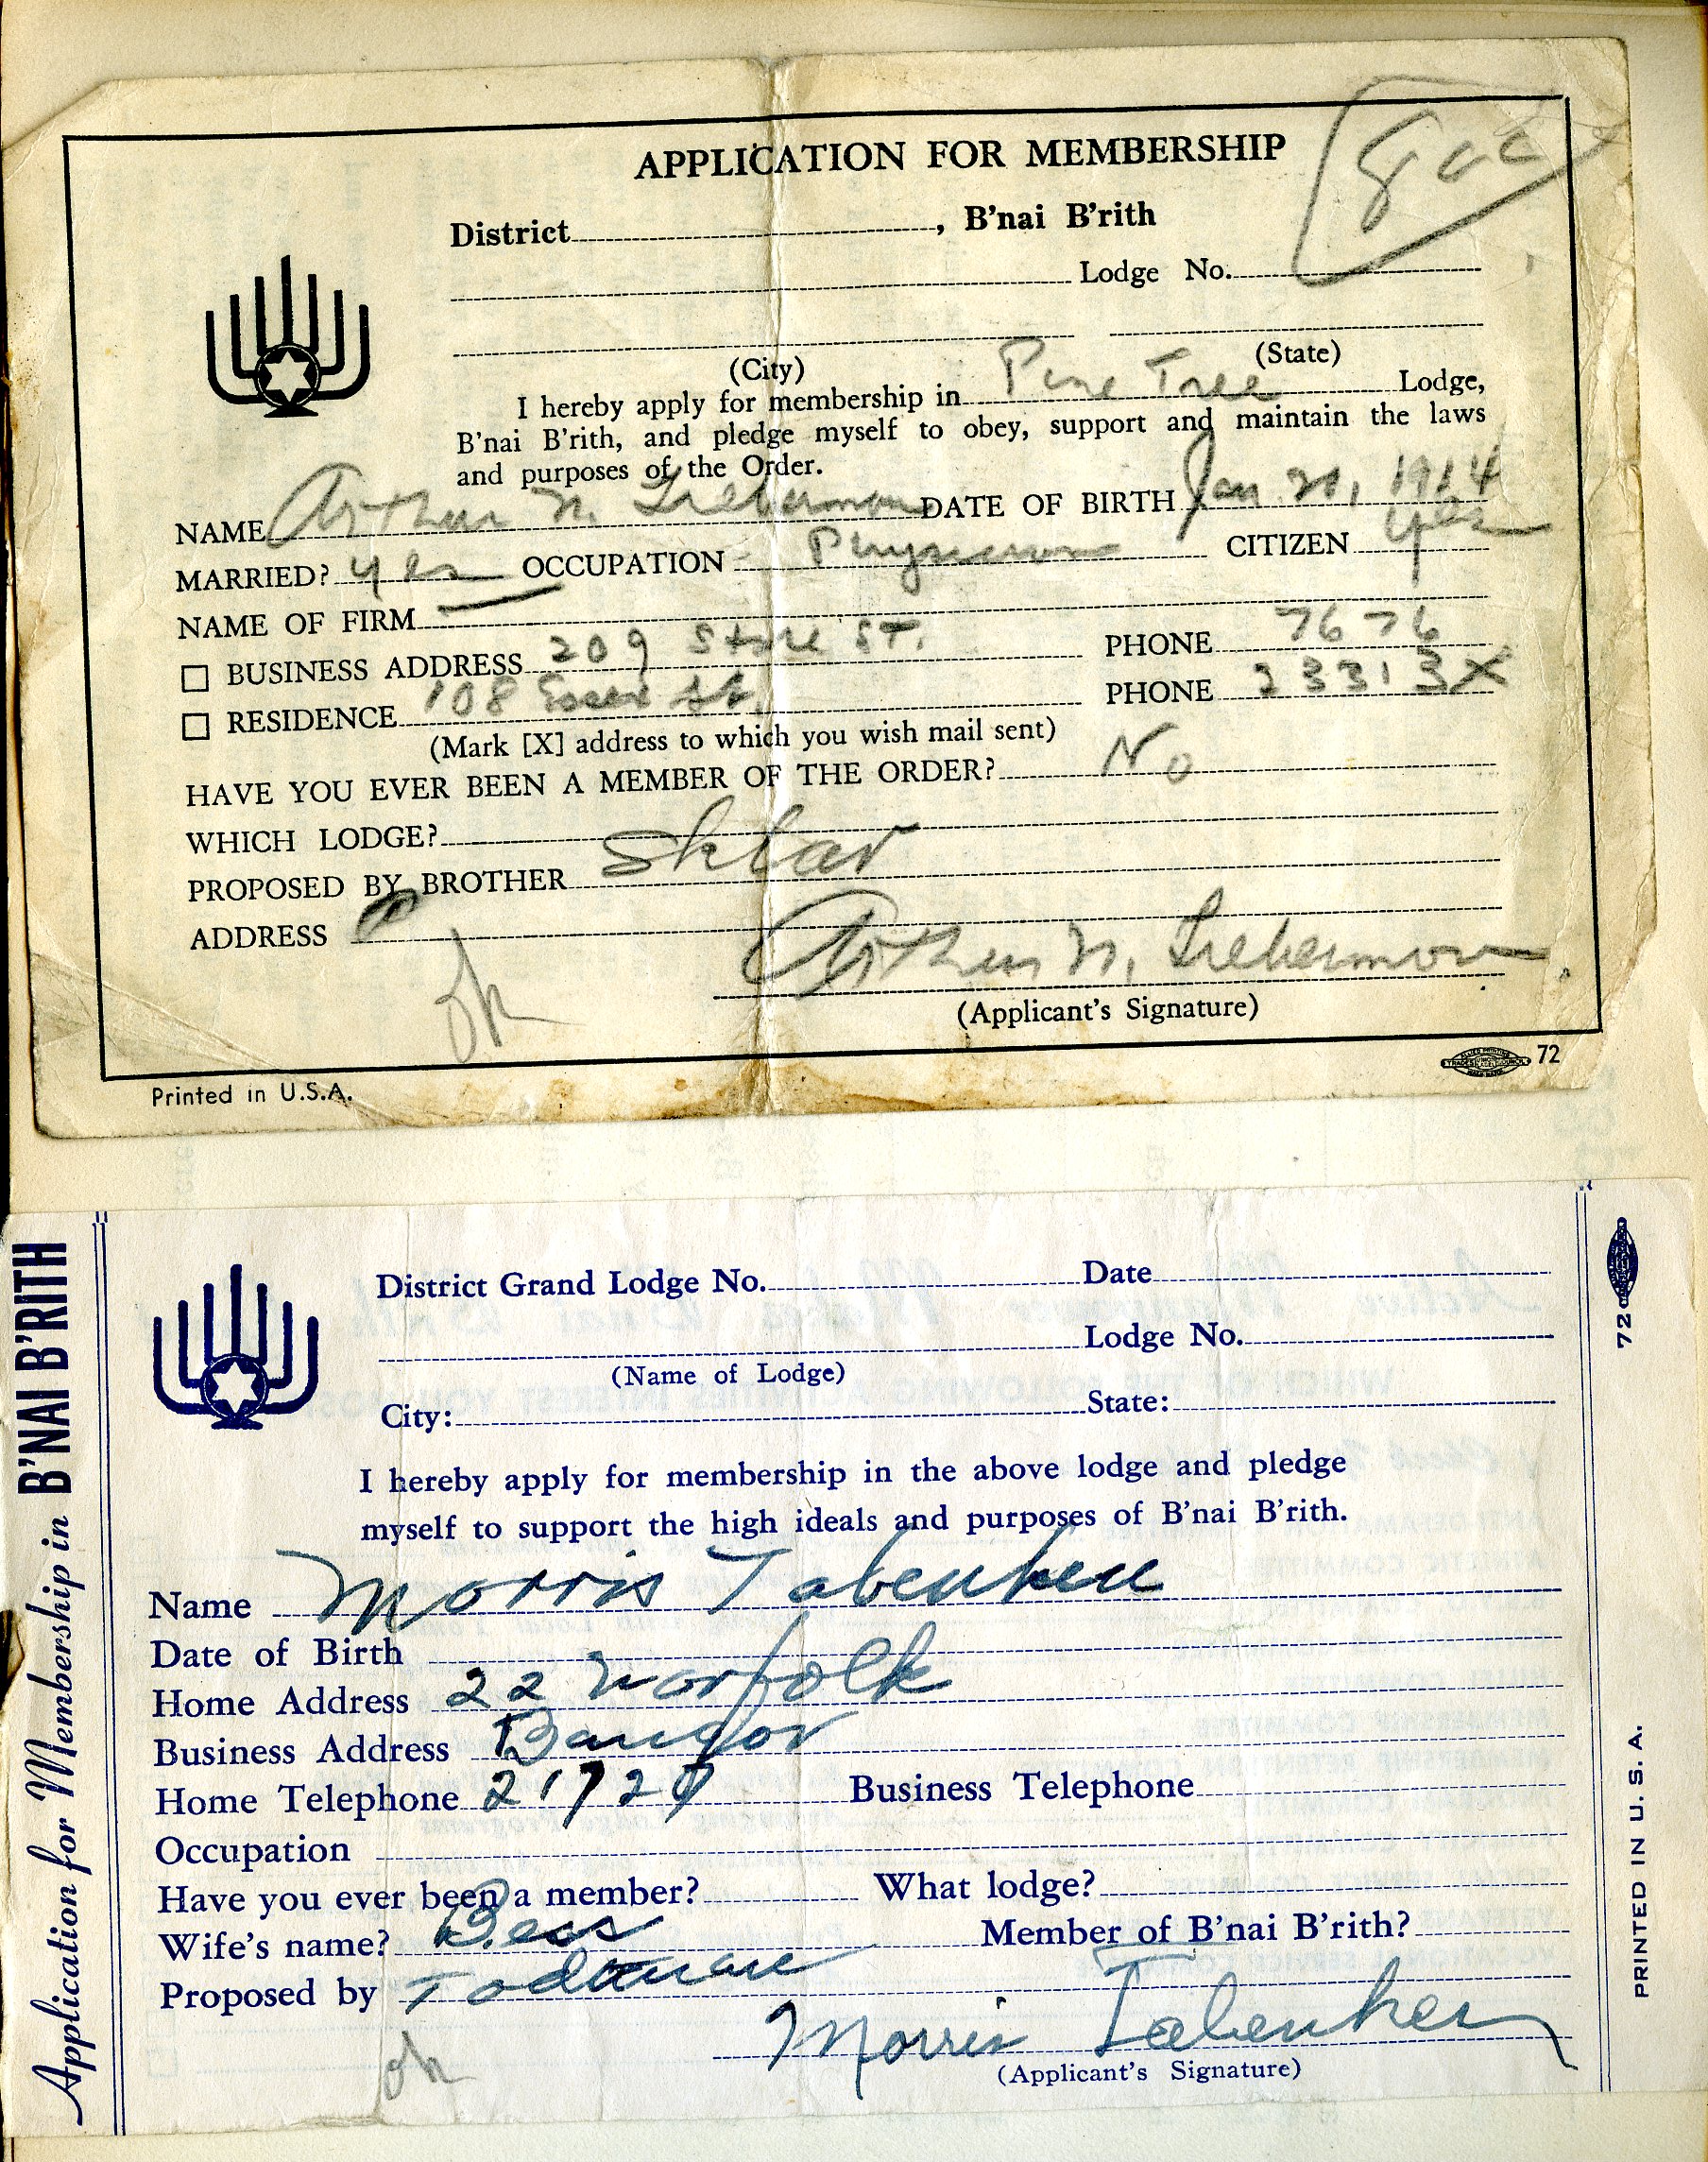 APPLICATION FOR MEMBERSHIP
District, B'nai B'rith
Lodge No.
(City) (State)
I hereby apply for membership in Pine Tree Lodge,
B'nai B'rith, and pledge myself to obey, support and maintain the laws
and purposes of the Order.
NAME Arthur N. Lieberman DATE OF BIRTH Jan 1914
MARRIED? yes OCCUPATION Physician CITIZEN yes
NAME OF FIRM
BUSINESS ADDRESS 209 State ST. PHONE 7676
RESIDENCE 108 Essex St. PHONE 23313X
(Mark [X] address to which you wish mail sent)
HAVE YOU EVER BEEN A MEMBER OF THE ORDER? No
WHICH LODGE?
PROPOSED BY BROTHER Sklar
ADDRESS
ok
Arthur N. Lieberman
(Applicant's Signature)
72
Printed in U.S.A.
Application for Membership in B'NAI B'RITH
District Grand Lodge No. Date
Lodge No.
(Name of Lodge)
City: State:
I hereby apply for membership in the above lodge and pledge
myself to support the high ideals and purposes of B'nai B'rith.
Name Morris Tabenken
Date of Birth
Home Address 22 Norfolk
Business Address Bangor
Home Telephone Business Telephone
Occupation
Have you ever been a member? What lodge?
Wife's name? Bess Member of B'nai B'rith?
Proposed by
ok
Morris Tabenken
(Applicant's Signature)
72
PRINTED IN U. S. A.